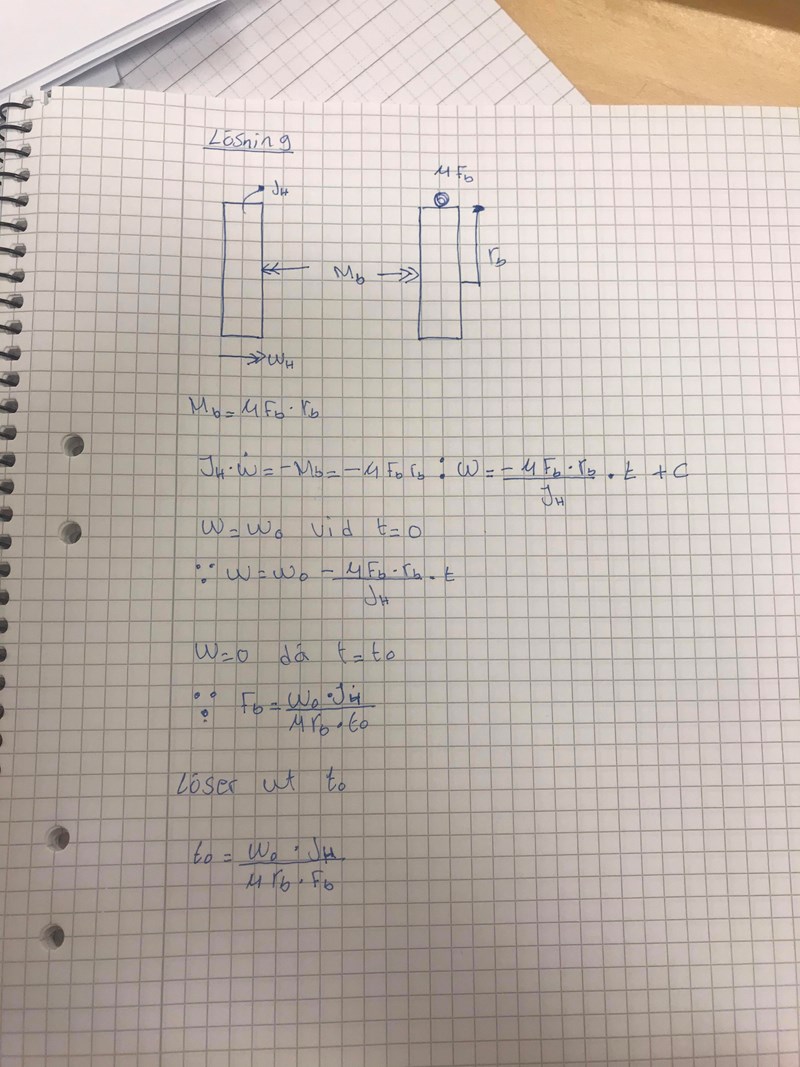 Lösning
J_H
μF_b
M_b
r_b
ω_H
M_b = μF_b · r_b
J_H · ω̇ = -M_b = -μF_b r_b : ω = \frac{-μF_b · r_b}{J_H} · t + C
ω = ω_0 vid t = 0
∵ ω = ω_0 - \frac{μF_b · r_b}{J_H} · t
ω = 0 då t = t_0
∵ F_b = \frac{ω_0 · J_H}{μ r_b · t_0}
Löser ut t_0
t_0 = \frac{ω_0 · J_H}{μ r_b · F_b}